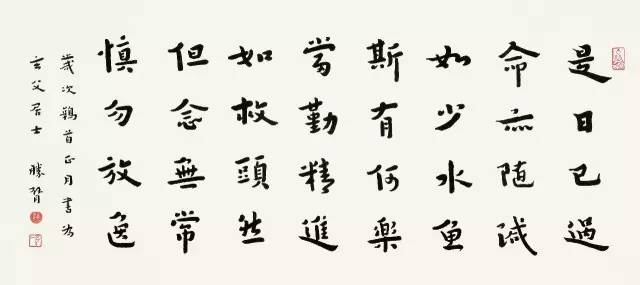 是日已過
命亦隨減
如少水魚
斯有何樂
當勤精進
如救頭然
但念無常
慎勿放逸
歲次鶉首正月書為
玄父居士